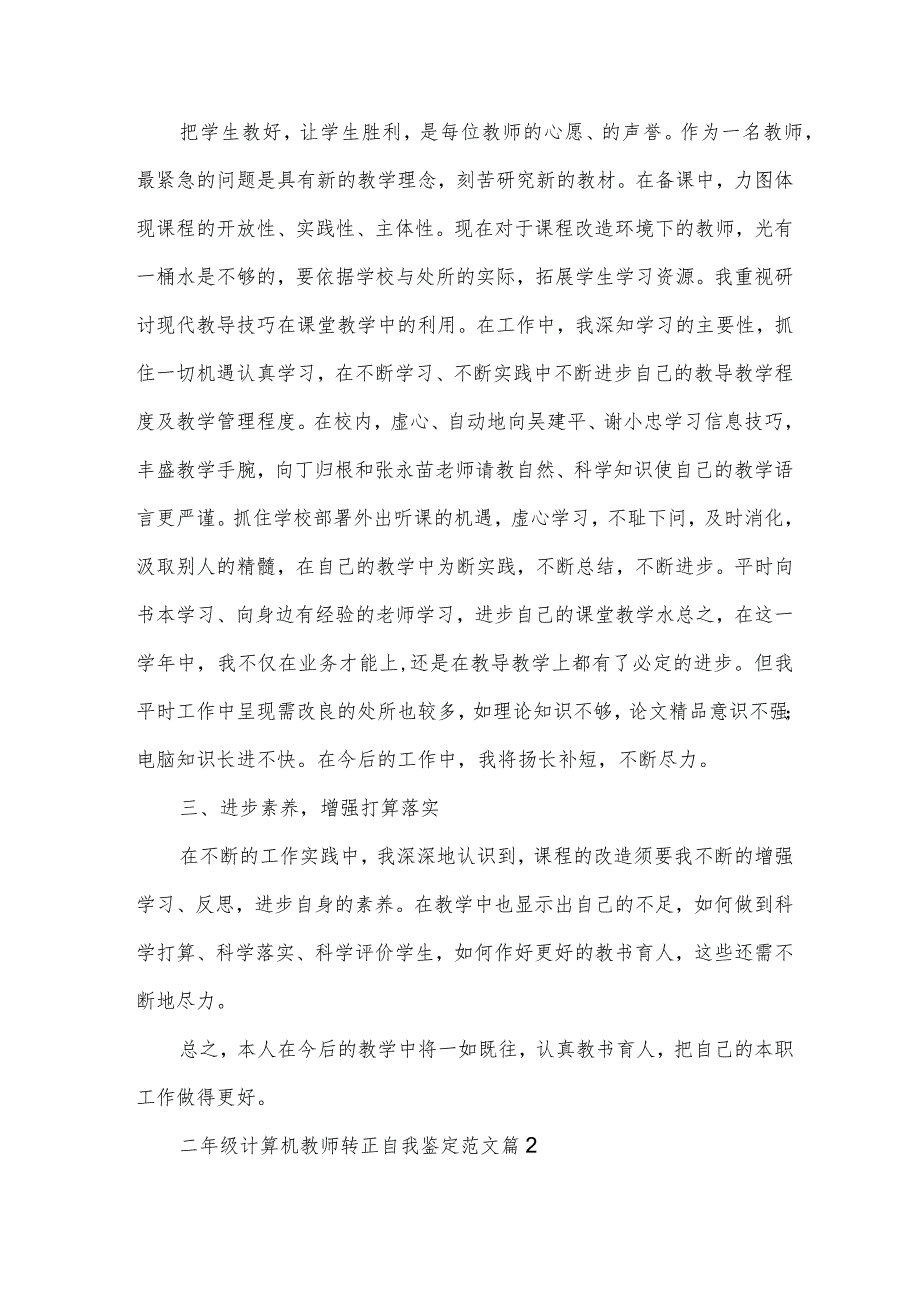 把学生教好，让学生胜利，是每位教师的心愿、的声誉。作为一名教师，
最紧急的问题是具有新的教学理念，刻苦研究新的教材。在备课中，力图体
现课程的开放性、实践性、主体性。现在对于课程改造环境下的教师，光有
一桶水是不够的，要依据学校与处所的实际，拓展学生学习资源。我重视研
讨现代教导技巧在课堂教学中的利用。在工作中，我深知学习的主要性，抓
住一切机遇认真学习，在不断学习、不断实践中不断进步自己的教导教学程
度及教学管理程度。在校内，虚心、自动地向吴建平、谢小忠学习信息技巧，
丰盛教学手腕，向丁归根和张永苗老师请教自然、科学知识使自己的教学语
言更严谨。抓住学校部署外出听课的机遇，虚心学习，不耻下问，及时消化，
汲取别人的精髓，在自己的教学中为断实践，不断总结，不断进步。平时向
书本学习、向身边有经验的老师学习，进步自己的课堂教学水总之，在这一
学年中，我不仅在业务才能上,还是在教导教学上都有了必定的进步。但我
平时工作中呈现需改良的处所也较多，如理论知识不够，论文精品意识不强；
电脑知识长进不快。在今后的工作中，我将扬长补短，不断尽力。
三、进步素养，增强打算落实
在不断的工作实践中，我深深地认识到，课程的改造须要我不断的增强
学习、反思，进步自身的素养。在教学中也显示出自己的不足，如何做到科
学打算、科学落实、科学评价学生，如何作好更好的教书育人，这些还需不
断地尽力。
总之，本人在今后的教学中将一如既往，认真教书育人，把自己的本职
工作做得更好。
二年级计算机教师转正自我鉴定范文篇2